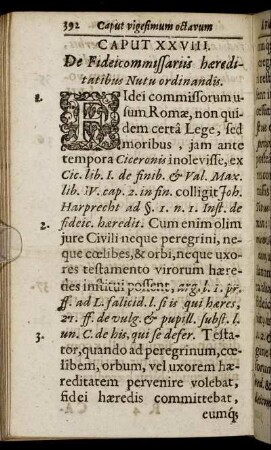 392 Caput vigesimum octavum
CAPUT XXVIII.
De Fideicommissariis hæredi-
tatibus Nutu ordinandis.
1. FIdei commissorum u-
sum Romæ, non qui-
dem certâ Lege, sed
moribus, jam ante
tempora Ciceronis inolevisse, ex
Cic. lib. I. de finib. & Val. Max.
lib. IV. cap. 2. in fin. colligit Joh.
Harprecht ad §. 1. n. 1. Inst. de
2. fideic. hæredit. Cum enim olim
jure Civili neque peregrini, ne-
que cœlibes, & orbi, neque uxo-
res testamento virorum hære-
des institui possent, arg. l. 1. pr.
ff. ad L. falicid. l. si is qui hæres,
21. ff. de vulg. & pupill. subst. l.
un. C. de his, qui se defer. Testa-
3. tor, quando ad peregrinum, cœ-
libem, orbum, vel uxorem hæ-
reditatem pervenire volebat,
fidei hæredis committebat,
R 4 eumq́;